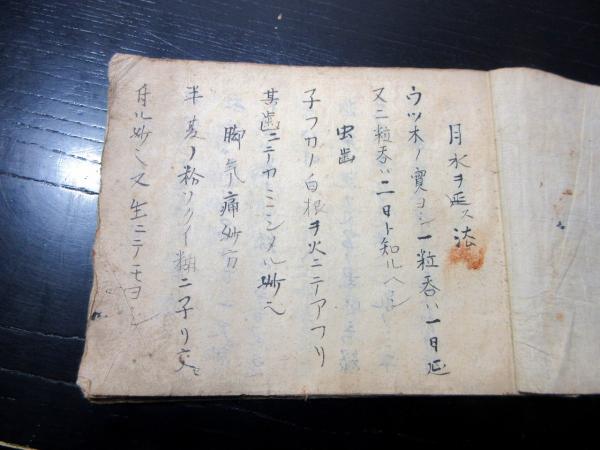 月水ヲ延ス法
ウツ木ノ實ヨシ一粒呑ハ一日延
又二粒呑ハ二日ト知ルヘシ
虫歯
子フカノ白根ヲ火ニテアフリ
其歯ニテカミシメル妙也
脚気痛妙方
半夏ノ粉ソクイ糊ニ子リ交セ
付ル妙也又生ニテモヨシ